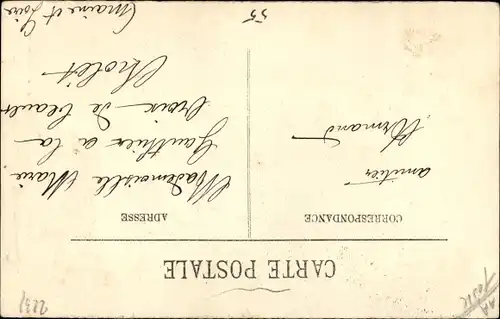 CARTE POSTALE
CORRESPONDANCE
amitiés
Armand
ADRESSE
Mademoiselle Marie
Gauthier a la
Croix de
Cholet
Maine et Loire
55